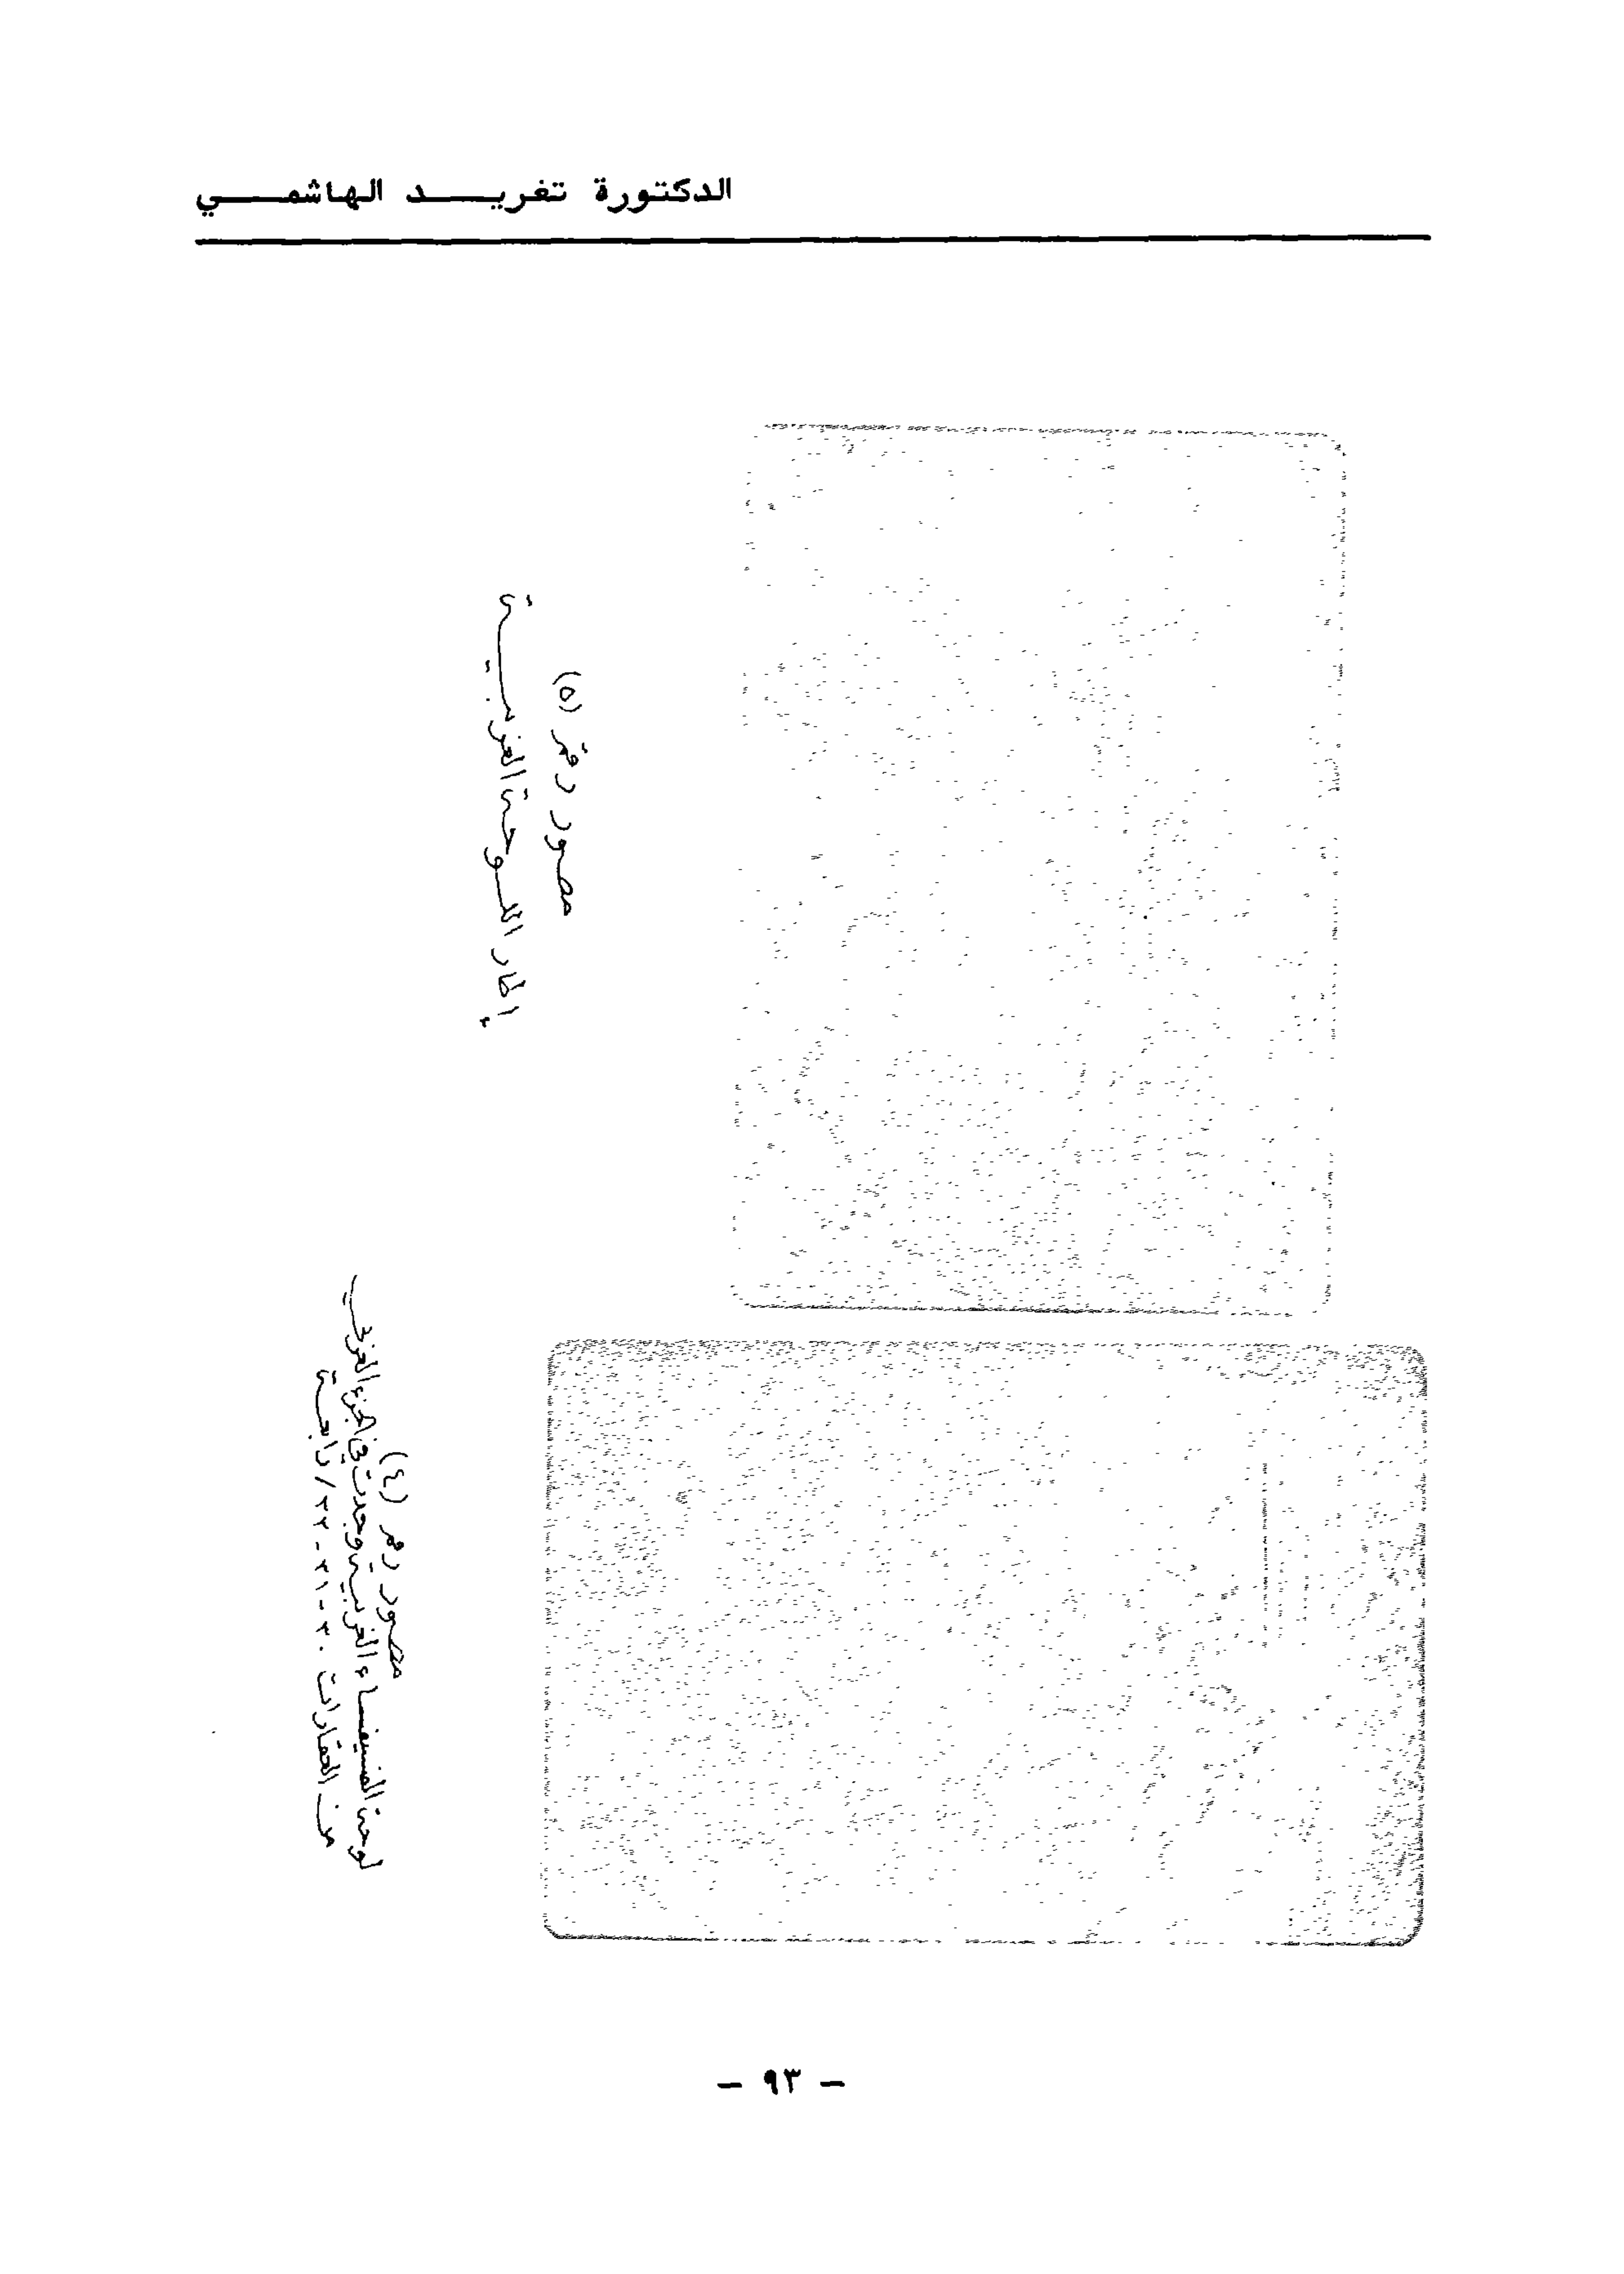 الدكتورة تغريد الهاشمي
مصور رقم (٥)
إطار اللوحة الغربية
مصور رقم (٤)
لوحة الفسيفساء الغربية وجدت في الجزء الغربي
من العقارات ٢٠ - ٢١ - ٢٢ /
- ٩٣ -